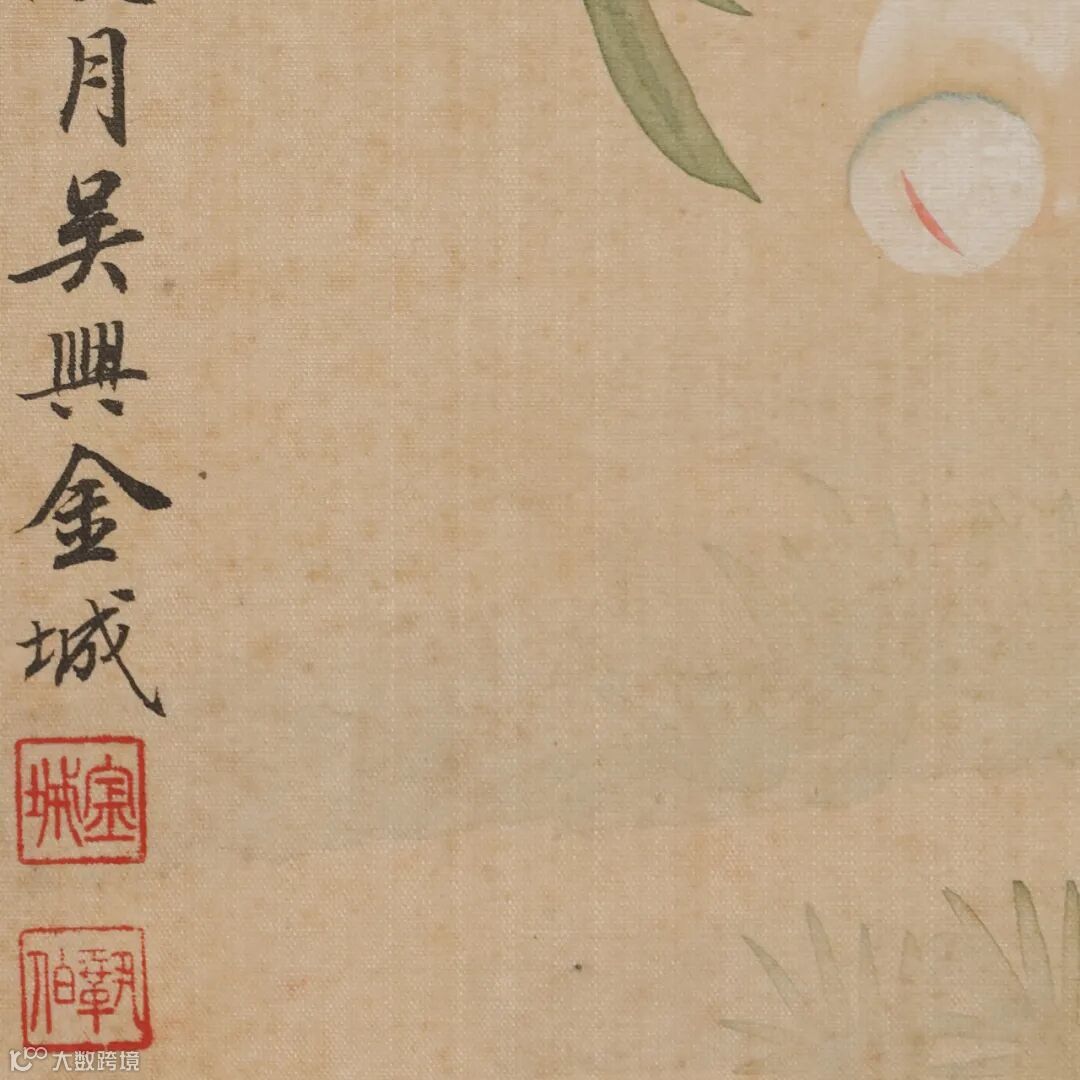 月吳興金城
金城
鞏伯
大数跨境